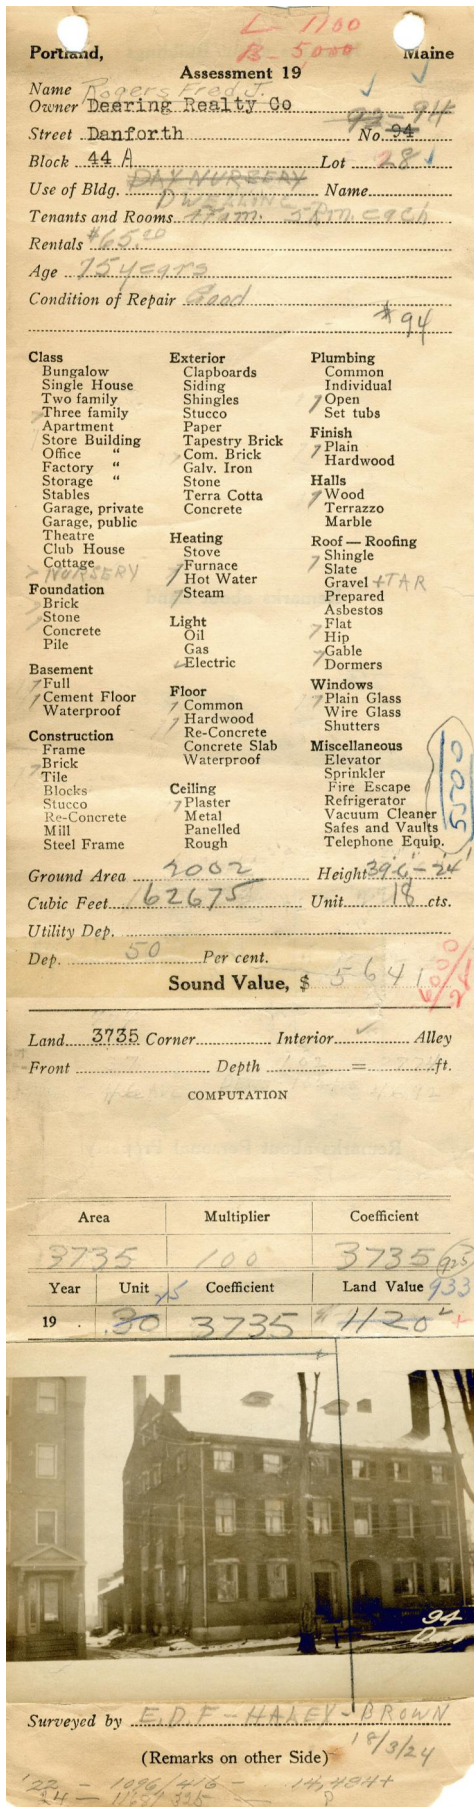 L- 1100
B- 5,000
Portland, Maine
Assessment 19
Name Rogers Fred J.
Owner Deering Realty Co
92-94
Street Danforth No. 94
Block 44 A Lot 28
DAY NURSERY
Use of Bldg. DWELLING Name
Tenants and Rooms 4 Fam. 5 Rm. each
Rentals $65.00
Age 75 years
Condition of Repair Good
$94
Class
Bungalow
Single House
Two family
Three family
Apartment
Store Building
Office "
Factory "
Storage "
Stables
Garage, private
Garage, public
Theatre
Club House
Cottage
NURSERY
Foundation
Brick
Stone
Concrete
Pile
Basement
Full
Cement Floor
Waterproof
Construction
Frame
Brick
Tile
Blocks
Stucco
Re-Concrete
Mill
Steel Frame
Exterior
Clapboards
Siding
Shingles
Stucco
Paper
Tapestry Brick
Com. Brick
Galv. Iron
Stone
Terra Cotta
Concrete
Heating
Stove
Furnace
Hot Water
Steam
Light
Oil
Gas
Electric
Floor
Common
Hardwood
Re-Concrete
Concrete Slab
Waterproof
Ceiling
Plaster
Metal
Panelled
Rough
Plumbing
Common
Individual
Open
Set tubs
Finish
Plain
Hardwood
Halls
Wood
Terrazzo
Marble
Roof — Roofing
Shingle
Slate
Gravel + TAR
Prepared
Asbestos
Flat
Hip
Gable
Dormers
Windows
Plain Glass
Wire Glass
Shutters
Miscellaneous
Elevator
Sprinkler
Fire Escape
Refrigerator
Vacuum Cleaner
Safes and Vaults
Telephone Equip.
5500
Ground Area 2002 Height 39'6"-24'
Cubic Feet 62675 Unit 18 cts.
Utility Dep.
Dep. 50 Per cent.
Sound Value, $ 5641
5000/24
Land 3735 Corner Interior Alley
Front Depth = ft.
COMPUTATION
Area Multiplier Coefficient
3735 100 3735 925
Year Unit 25 Coefficient Land Value 933
19 .30 3735 $1120
94
Surveyed by E.D.F-HALEY-BROWN
18/3/24
(Remarks on other Side)
'22 - 1096/416 - 14,484+